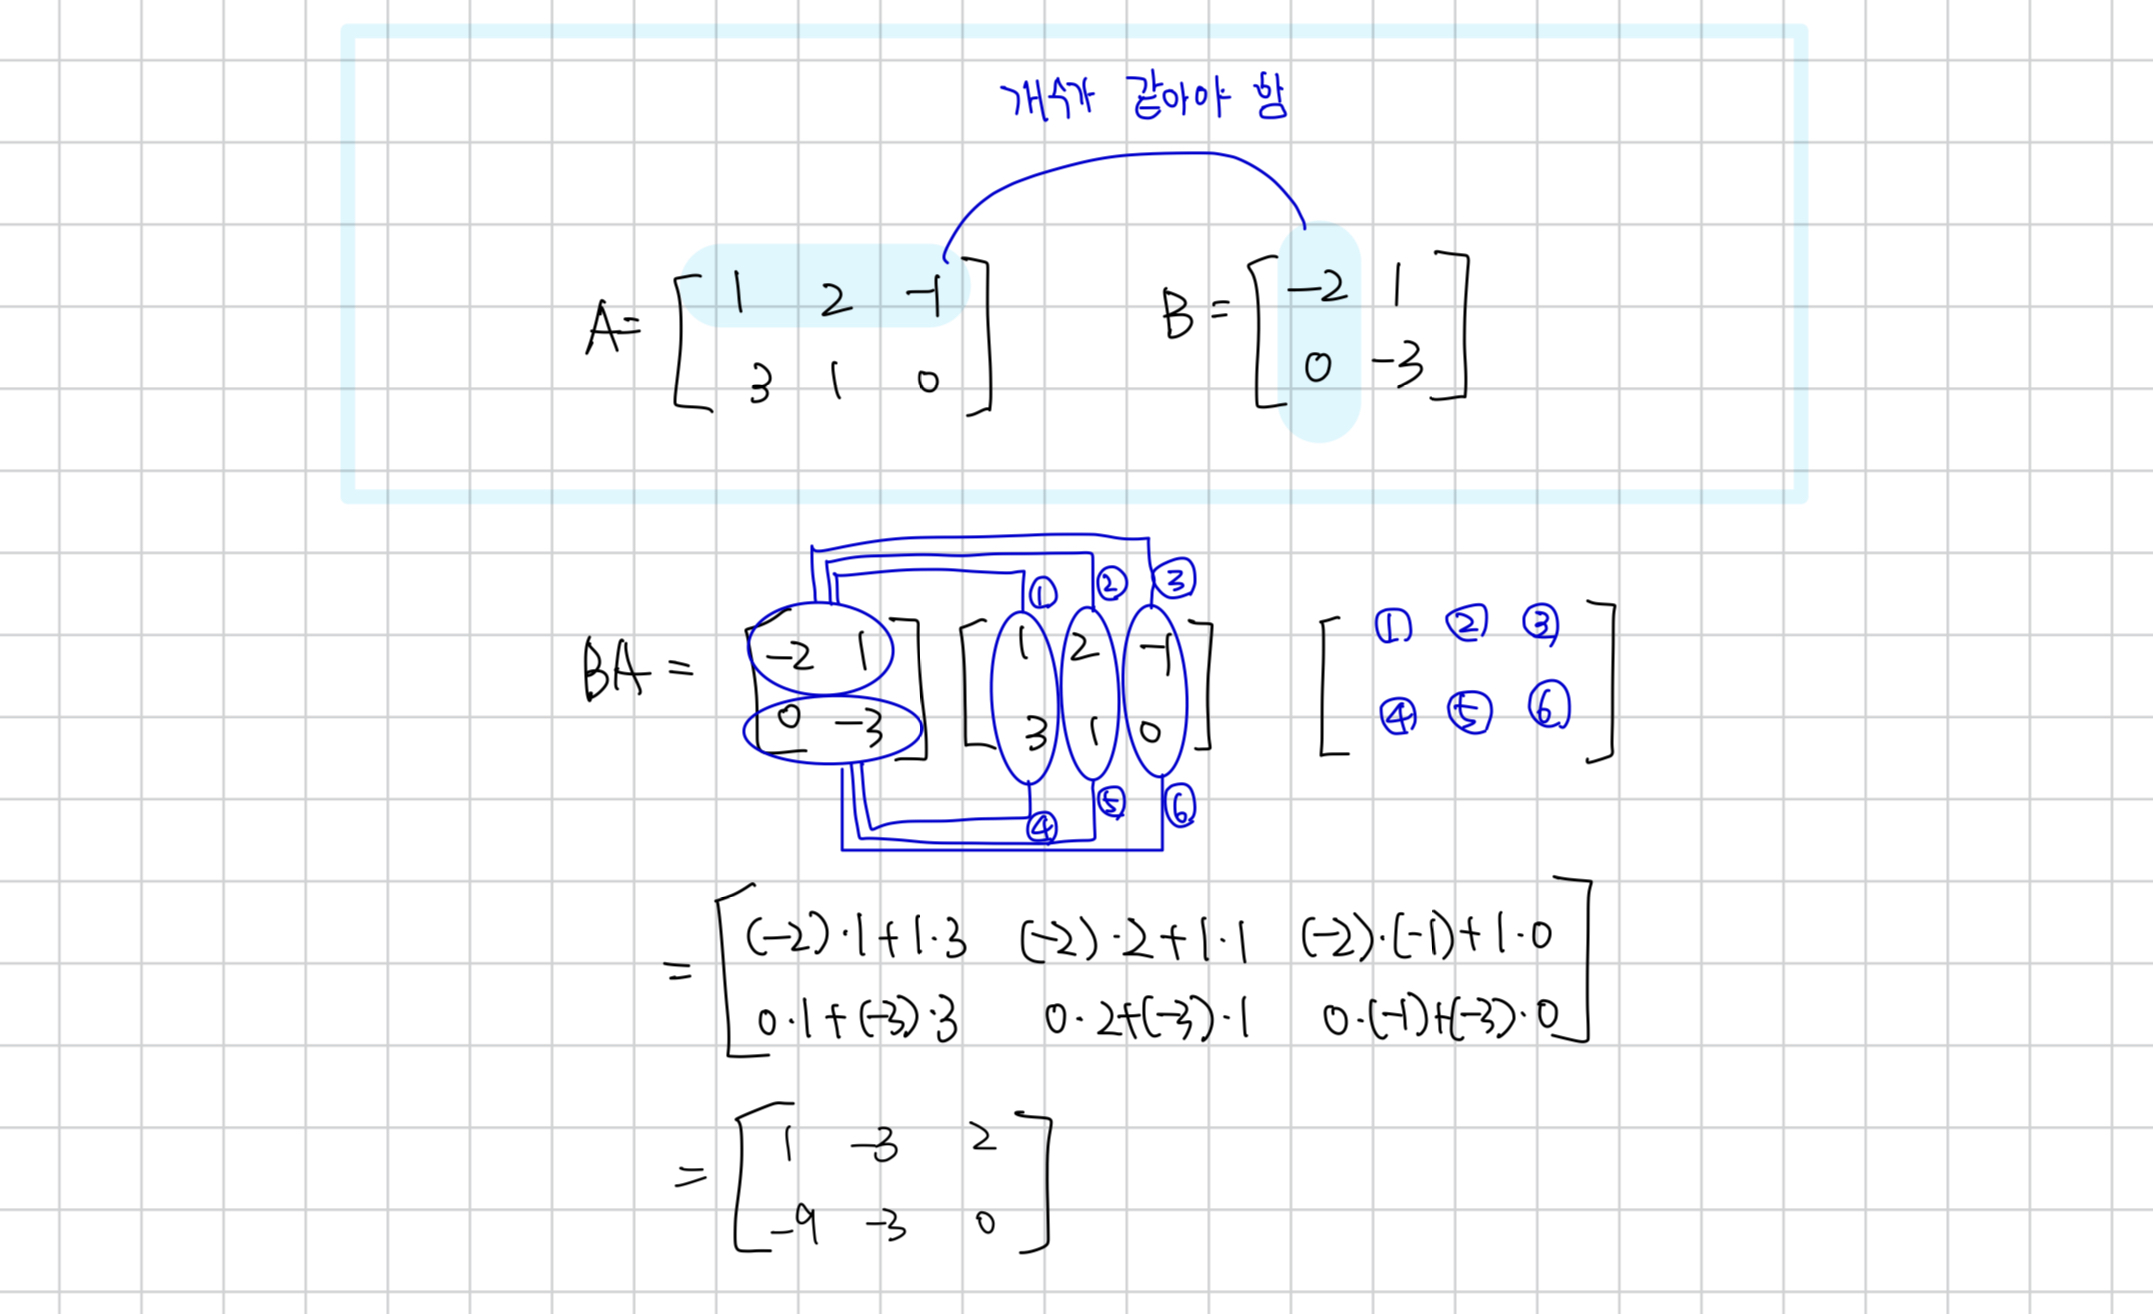 개수가 같아야 함
A= [ 1 2 -1
3 1 0 ]
B = [ -2 1
0 -3 ]
① ② ③
BA = [ -2 1
0 -3 ] [ 1 2 -1
3 1 0 ] [ ① ② ③
④ ⑤ ⑥ ]
④ ⑤ ⑥
= [ (-2)·1+1·3 (-2)·2+1·1 (-2)·(-1)+1·0
0·1+(-3)·3 0·2+(-3)·1 0·(-1)+(-3)·0 ]
= [ 1 -3 2
-9 -3 0 ]